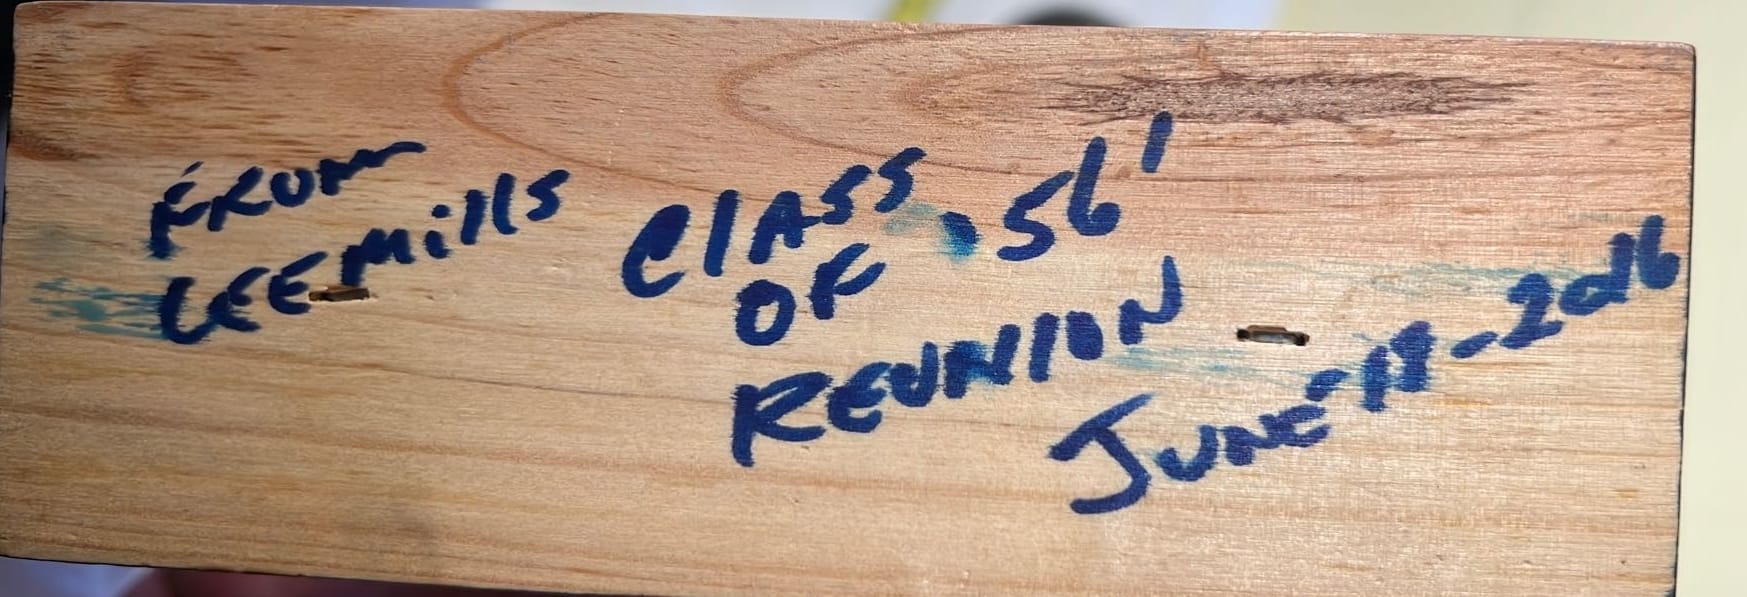 FROM
LEE Mills
ClASS
OF . 56'
REUNION
JUNE-18-2016